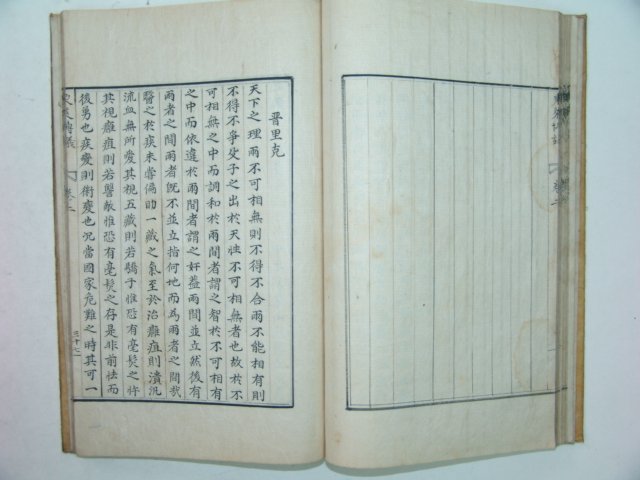 晋里克
天下之理兩不可相無則不得不合兩不能相有則
不得不爭父子之出於天性不可相無者也故於不
可相無之中而調和於兩間者謂之智於不可相有
之中而依違於兩間者謂之奸蓋兩間並立然後有
兩者之間兩者旣不並立指何地而爲兩者之間哉
醫之於疾未嘗偏助一藏之氣至於治癰疽則潰汛
流血無所愛其視五藏則若驕子惟恐有毫髮之忤
其視癰疽則若讐敵惟恐有毫髮之存是非前怯而
後勇也疾變則術變也況當國家危難之時其可一
卷二
三十七